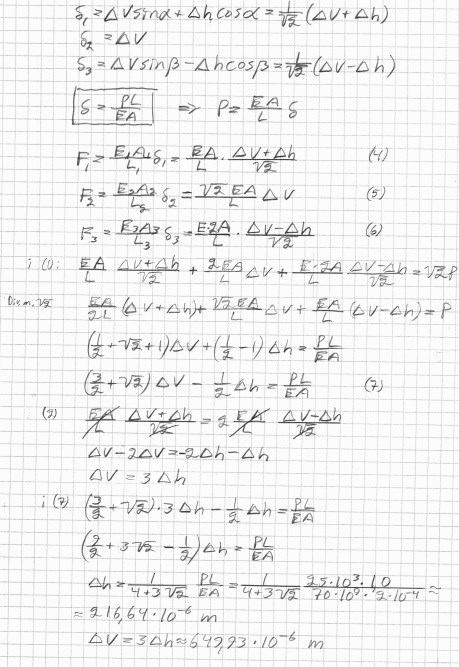 δ₁ = ΔV sinα + Δh cosα = 1/√2 (ΔV + Δh)
δ₂ = ΔV
δ₃ = ΔV sinβ - Δh cosβ = 1/√2 (ΔV - Δh)
δ = PL/EA ⇒ P = EA/L δ
F₁ = E₁A₁/L₁ δ₁ = EA/L · ΔV+Δh/√2 (4)
F₂ = E₂A₂/L₂ δ₂ = √2 EA/L ΔV (5)
F₃ = E₃A₃/L₃ δ₃ = E·2A/L · ΔV-Δh/√2 (6)
i (1): EA/L ΔV+Δh/√2 + 2EA/L ΔV + E·2A/L ΔV-Δh/√2 = √2P
Div.m. √2 EA/2L (ΔV + Δh) + √2 EA/L ΔV + EA/L (ΔV - Δh) = P
(1/2 + √2 + 1)ΔV + (1/2 - 1) Δh = PL/EA
(3/2 + √2) ΔV - 1/2 Δh = PL/EA (7)
(2) EA/L ΔV+Δh/√2 = 2 EA/L ΔV-Δh/√2
ΔV - 2ΔV = -2Δh - Δh
ΔV = 3Δh
i (7) (3/2 + √2) · 3Δh - 1/2 Δh = PL/EA
(9/2 + 3√2 - 1/2) Δh = PL/EA
Δh = 1/4+3√2 PL/EA = 1/4+3√2 25·10³·1,0/70·10⁹·2·10⁻⁴ ≈
≈ 216,64·10⁻⁶ m
ΔV = 3Δh ≈ 649,93·10⁻⁶ m